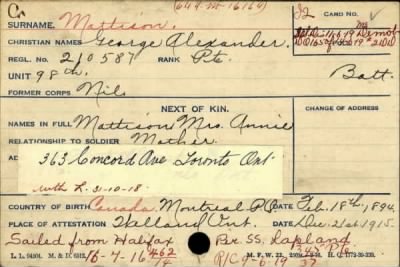 C. (649-M-16164) I2 CARD NO.
SURNAME. Mattison.
CHRISTIAN NAMES George Alexander.
REGL. No. 210587 RANK Pte
UNIT 98th. Batt.
FORMER CORPS Nil.
NEXT OF KIN. CHANGE OF ADDRESS
NAMES IN FULL Mattison Mrs. Annie
RELATIONSHIP TO SOLDIER Mother
AD
363 Concord Ave Toronto Ont.
auth L. 31-10-18.
COUNTRY OF BIRTH Canada Montreal P.Q. DATE Feb. 18th, 1894.
PLACE OF ATTESTATION Welland Ont. DATE Dec. 21st, 1915.
Sailed from Halifax Per SS. Lapland
L. L. 94501. M. & D. 6512. 16-7-16 M. F. W. 22.